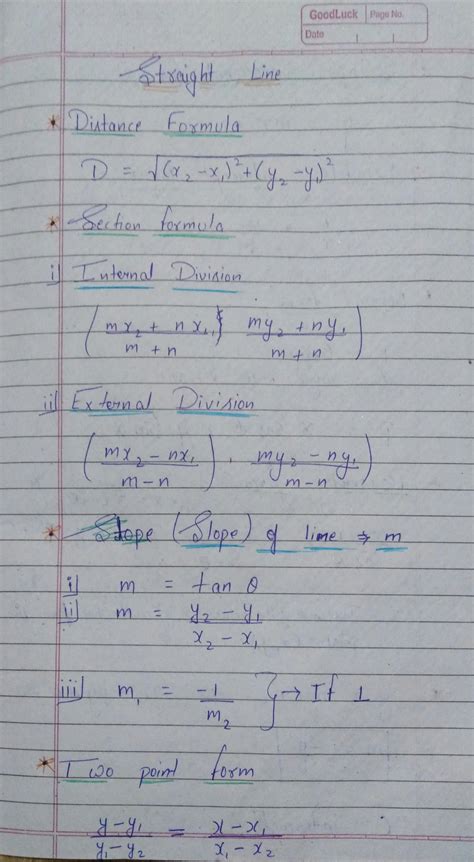 GoodLuck Page No.
Date
Straight Line
* Distance Formula
D = √(x₂ - x₁)² + (y₂ - y₁)²
* Section formula
i) Internal Division
( (mx₂ + nx₁)/(m + n) , (my₂ + ny₁)/(m + n) )
ii) External Division
( (mx₂ - nx₁)/(m - n) , (my₂ - ny₁)/(m - n) )
* Slope (Slope) of lime ⇒ m
i) m = tan θ
ii) m = (y₂ - y₁)/(x₂ - x₁)
iii) m₁ = -1/m₂ } → If ⊥
* Two point form
(y - y₁)/(y₁ - y₂) = (x - x₁)/(x₁ - x₂)